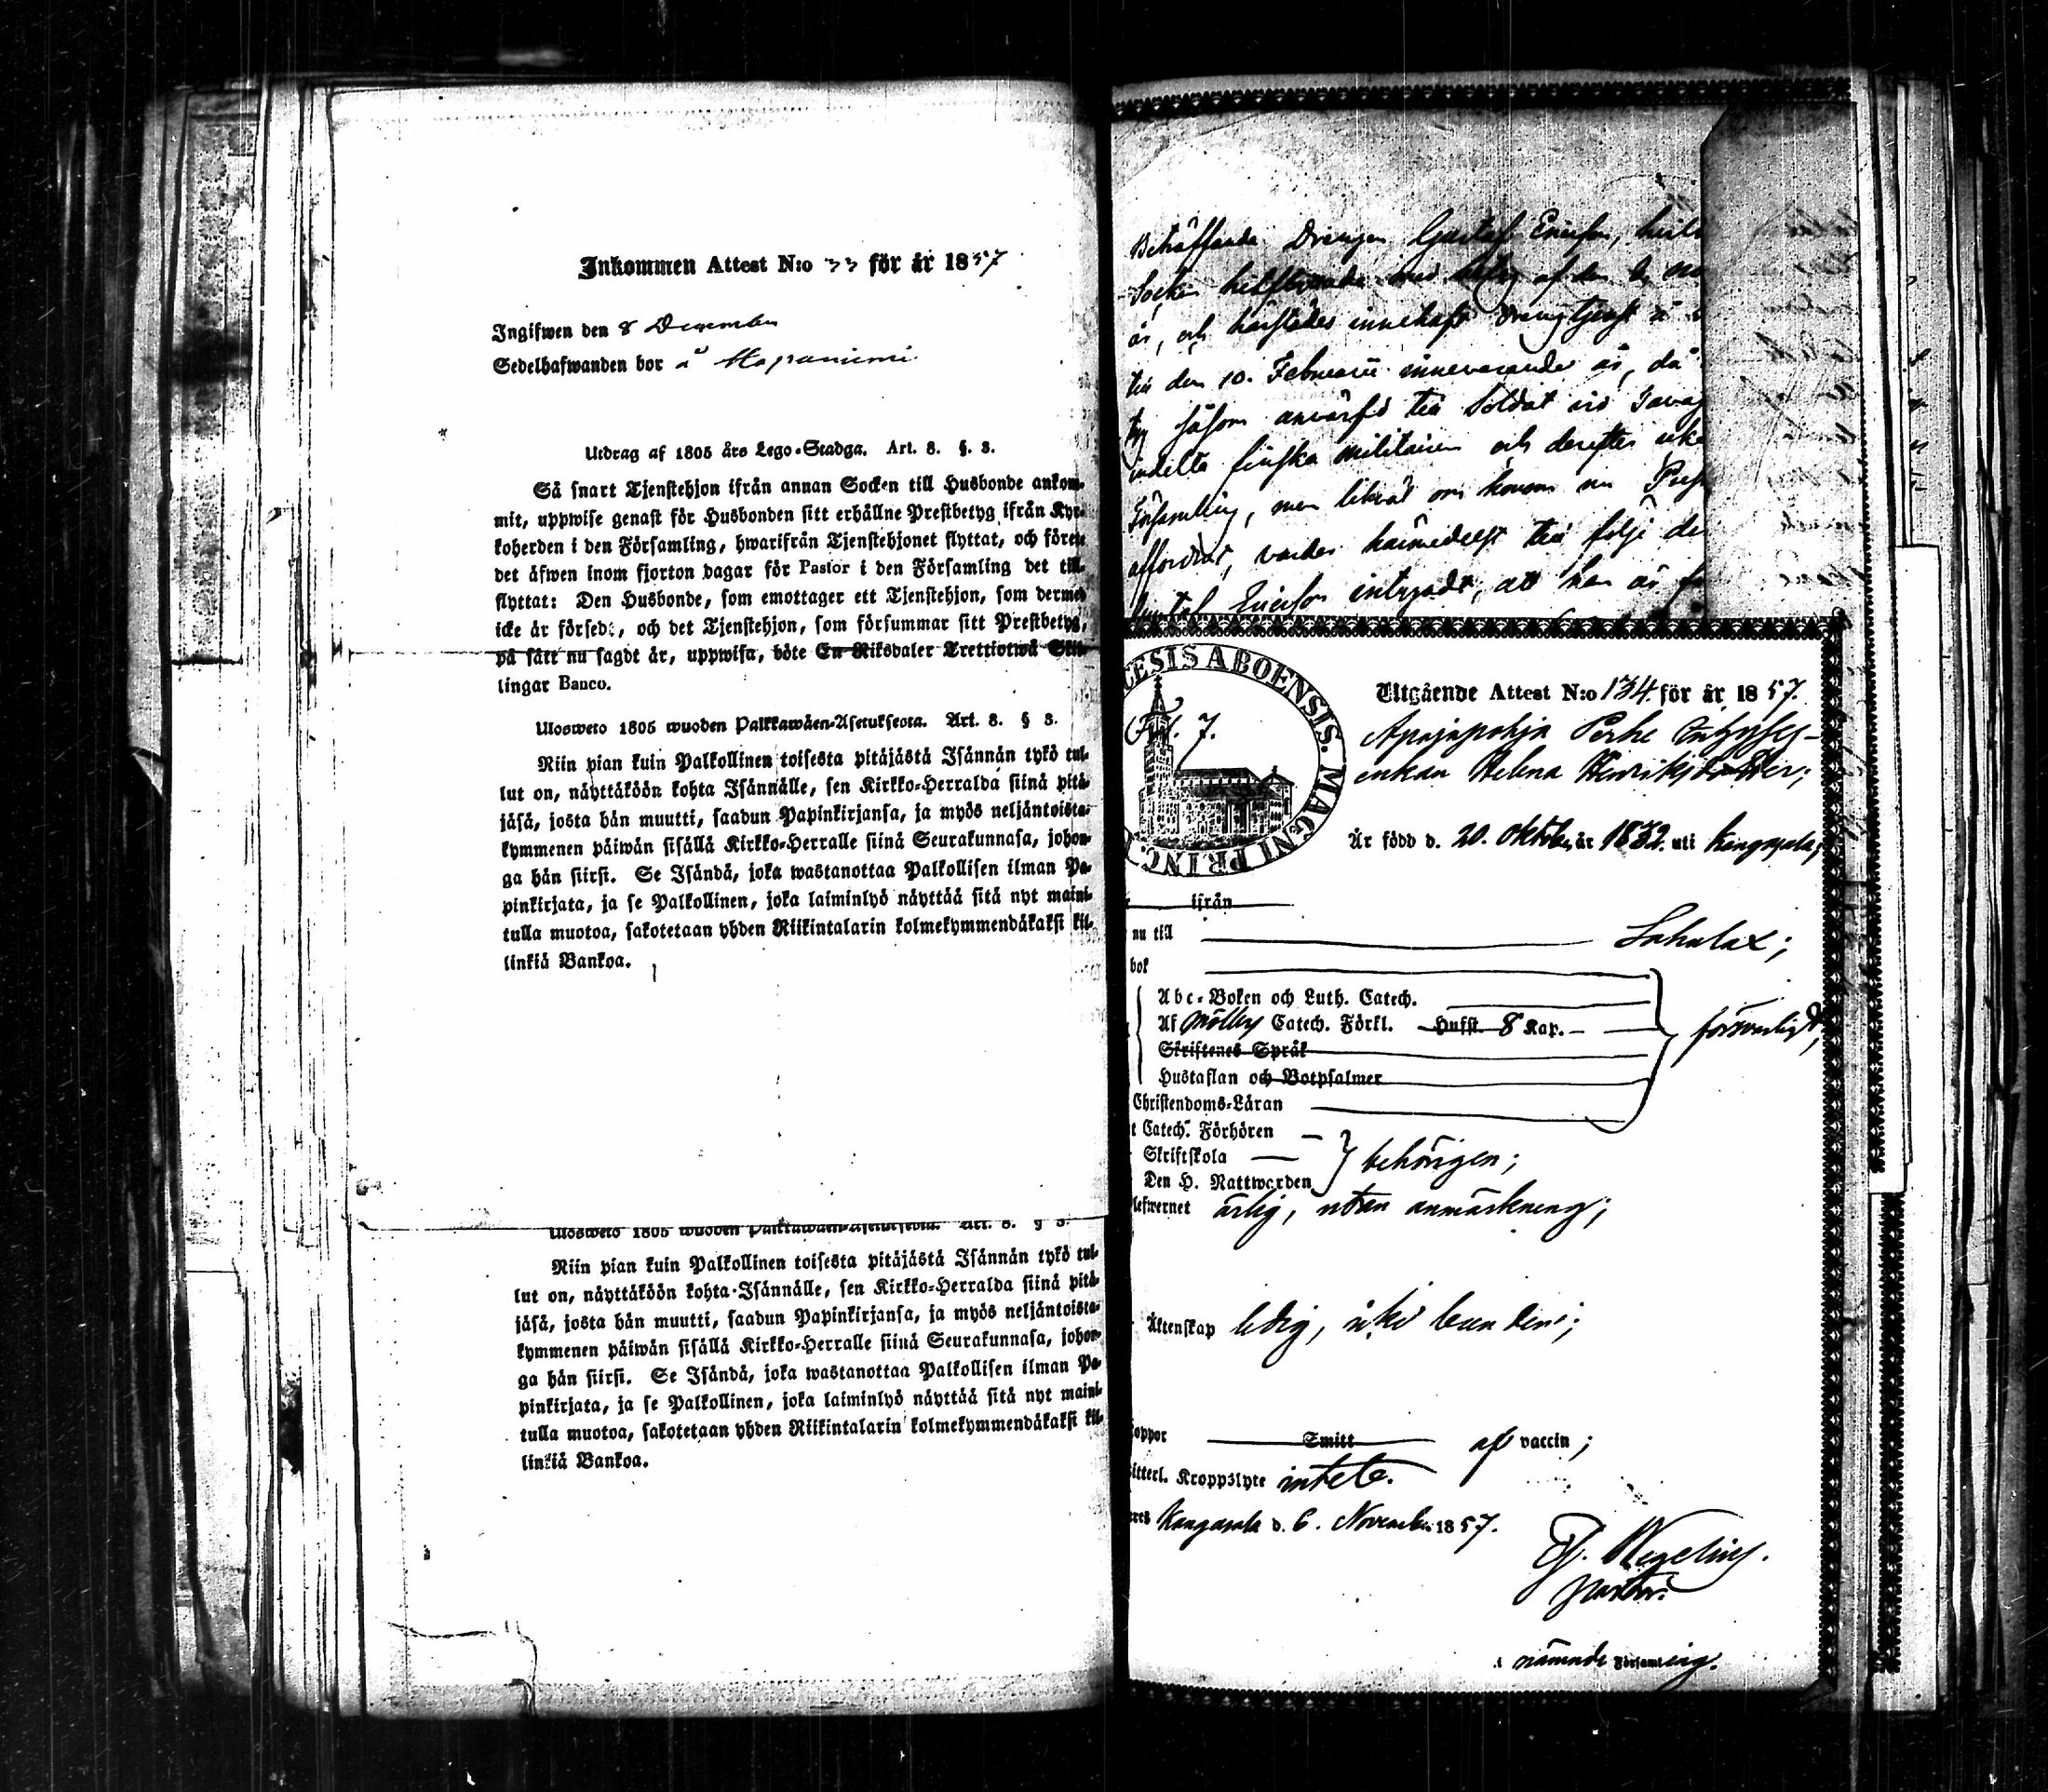 Inkommen Attest N:o 33 för år 1857
Ingifwen den 8 December
Sedelhafwanden bor å Hapaniemi
Utdrag af 1805 års Lego-Stadga. Art. 8. §. 3.
Så snart Tjenstehjon ifrån annan Socken till Husbonde ankom-
mit, uppwise genast för Husbonden sitt erhållne Prestbetyg ifrån Kyr-
koherden i den Församling, hwarifrån Tjenstehjonet flyttat, och förete
det äfwen inom fjorton dagar för Pastor i den Församling det till-
flyttat: Den Husbonde, som emottager ett Tjenstehjon, som dermed
icke är försedt, och det Tjenstehjon, som försummar sitt Prestbetyg,
på sätt nu sagdt är, uppwisa, böte En Riksdaler Trettiotwå Skil-
lingar Banco.
Ulosweto 1805 wuoden Palkkawäen-Asetuksesta. Art. 8. § 3.
Niin pian kuin Palkollinen toisesta pitäjästä Isännän tykö tul-
lut on, näyttäköön kohta Isännälle, sen Kirkko-Herralda siinä pitä-
jäsä, josta hän muutti, saadun Papinkirjansa, ja myös neljäntoista-
kymmenen päiwän sisällä Kirkko-Herralle siinä Seurakunnasa, johon-
ga hän siirsi. Se Isändä, joka wastanottaa Palkollisen ilman Pa-
pinkirjata, ja se Palkollinen, joka laiminlyö näyttää sitä nyt maini-
tulla muotoa, sakotetaan yhden Riikintalarin kolmekymmendäkaksi kil-
linkiä Bankoa.
Ulosweto 1805 wuoden Palkkawäen-Asetuksesta. Art. 8. § 3.
Niin pian kuin Palkollinen toisesta pitäjästä Isännän tykö tul-
lut on, näyttäköön kohta Isännälle, sen Kirkko-Herralda siinä pitä-
jäsä, josta hän muutti, saadun Papinkirjansa, ja myös neljäntoista-
kymmenen päiwän sisällä Kirkko-Herralle siinä Seurakunnasa, johon-
ga hän siirsi. Se Isändä, joka wastanottaa Palkollisen ilman Pa-
pinkirjata, ja se Palkollinen, joka laiminlyö näyttää sitä nyt maini-
tulla muotoa, sakotetaan yhden Riikintalarin kolmekymmendäkaksi kil-
linkiä Bankoa.
Beträffande Drengen Gustaf Ericsson,
Socken med betyg af den
år, och härstädes innehaft drengtjenst å
till den 10. Februarii innevarande år, då
såsom anvärfd till Soldat vid
indelta finska militairen och derefter
Församling, men
varder härmedelst till följe
Gustaf Ericsson intygadt, att han är
CESIS ABOENSIS. MAGNI PRINC.
Fol. 7.
Utgående Attest N:o 134 för år 1857.
Apajapohja
enkan Helena Henriksdotter;
Är född d. 20. Oktober år 1832. uti Kangasala;
ifrån
nu till Sahalax;
bok
Abc-Boken och Luth. Catech.
Af Möllers Catech. Förkl. Hufst. 8 Kap. försvarligt;
Skriftenes Språk
Hustaflan och Botpsalmer
Christendoms-Läran
Catech. Förhören
Skriftskola behörigen;
Den H. Nattwarden
lefwernet ärlig, utan anmärkning;
Äktenskap ledig, icke bunden;
koppor Smitt af vaccin;
sitterl. Kroppslyte intete.
Kangasala d. 6. November 1857.
Wegelius.
pastor.
nämnde Församling.